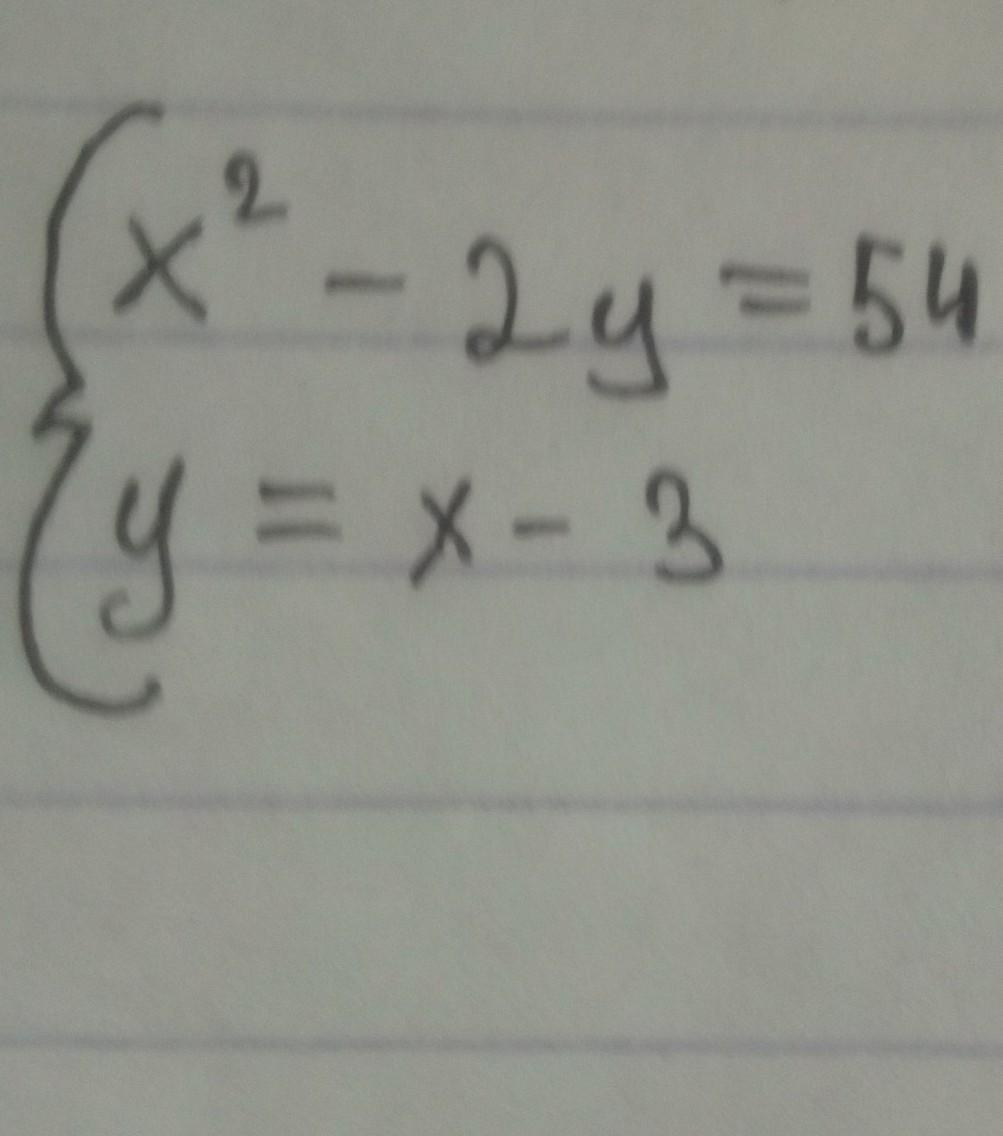 x² - 2y = 54
y = x - 3